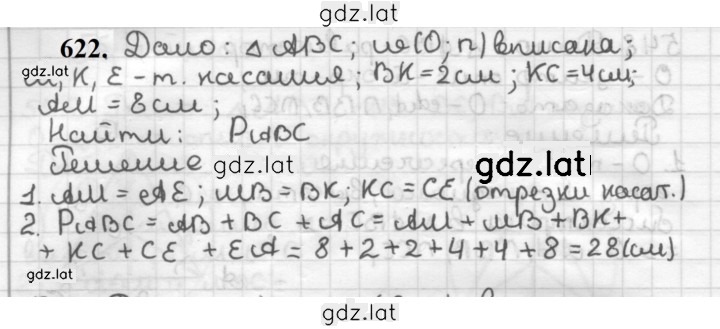 gdz.lat
622. Дано: △ABC; на(O; r) вписана;
gdz.lat
M, K, E - т. касания; BK = 2 см; KC = 4 см;
AM = 8 см;
gdz.lat
Найти: PABC
gdz.lat
Решение
gdz.lat
1. AM = AE; MB = BK; KC = CE (отрезки касат.)
2. PABC = AB + BC + AC = AM + MB + BK +
+ KC + CE + EA = 8 + 2 + 2 + 4 + 4 + 8 = 28 (см)
gdz.lat
gdz.lat